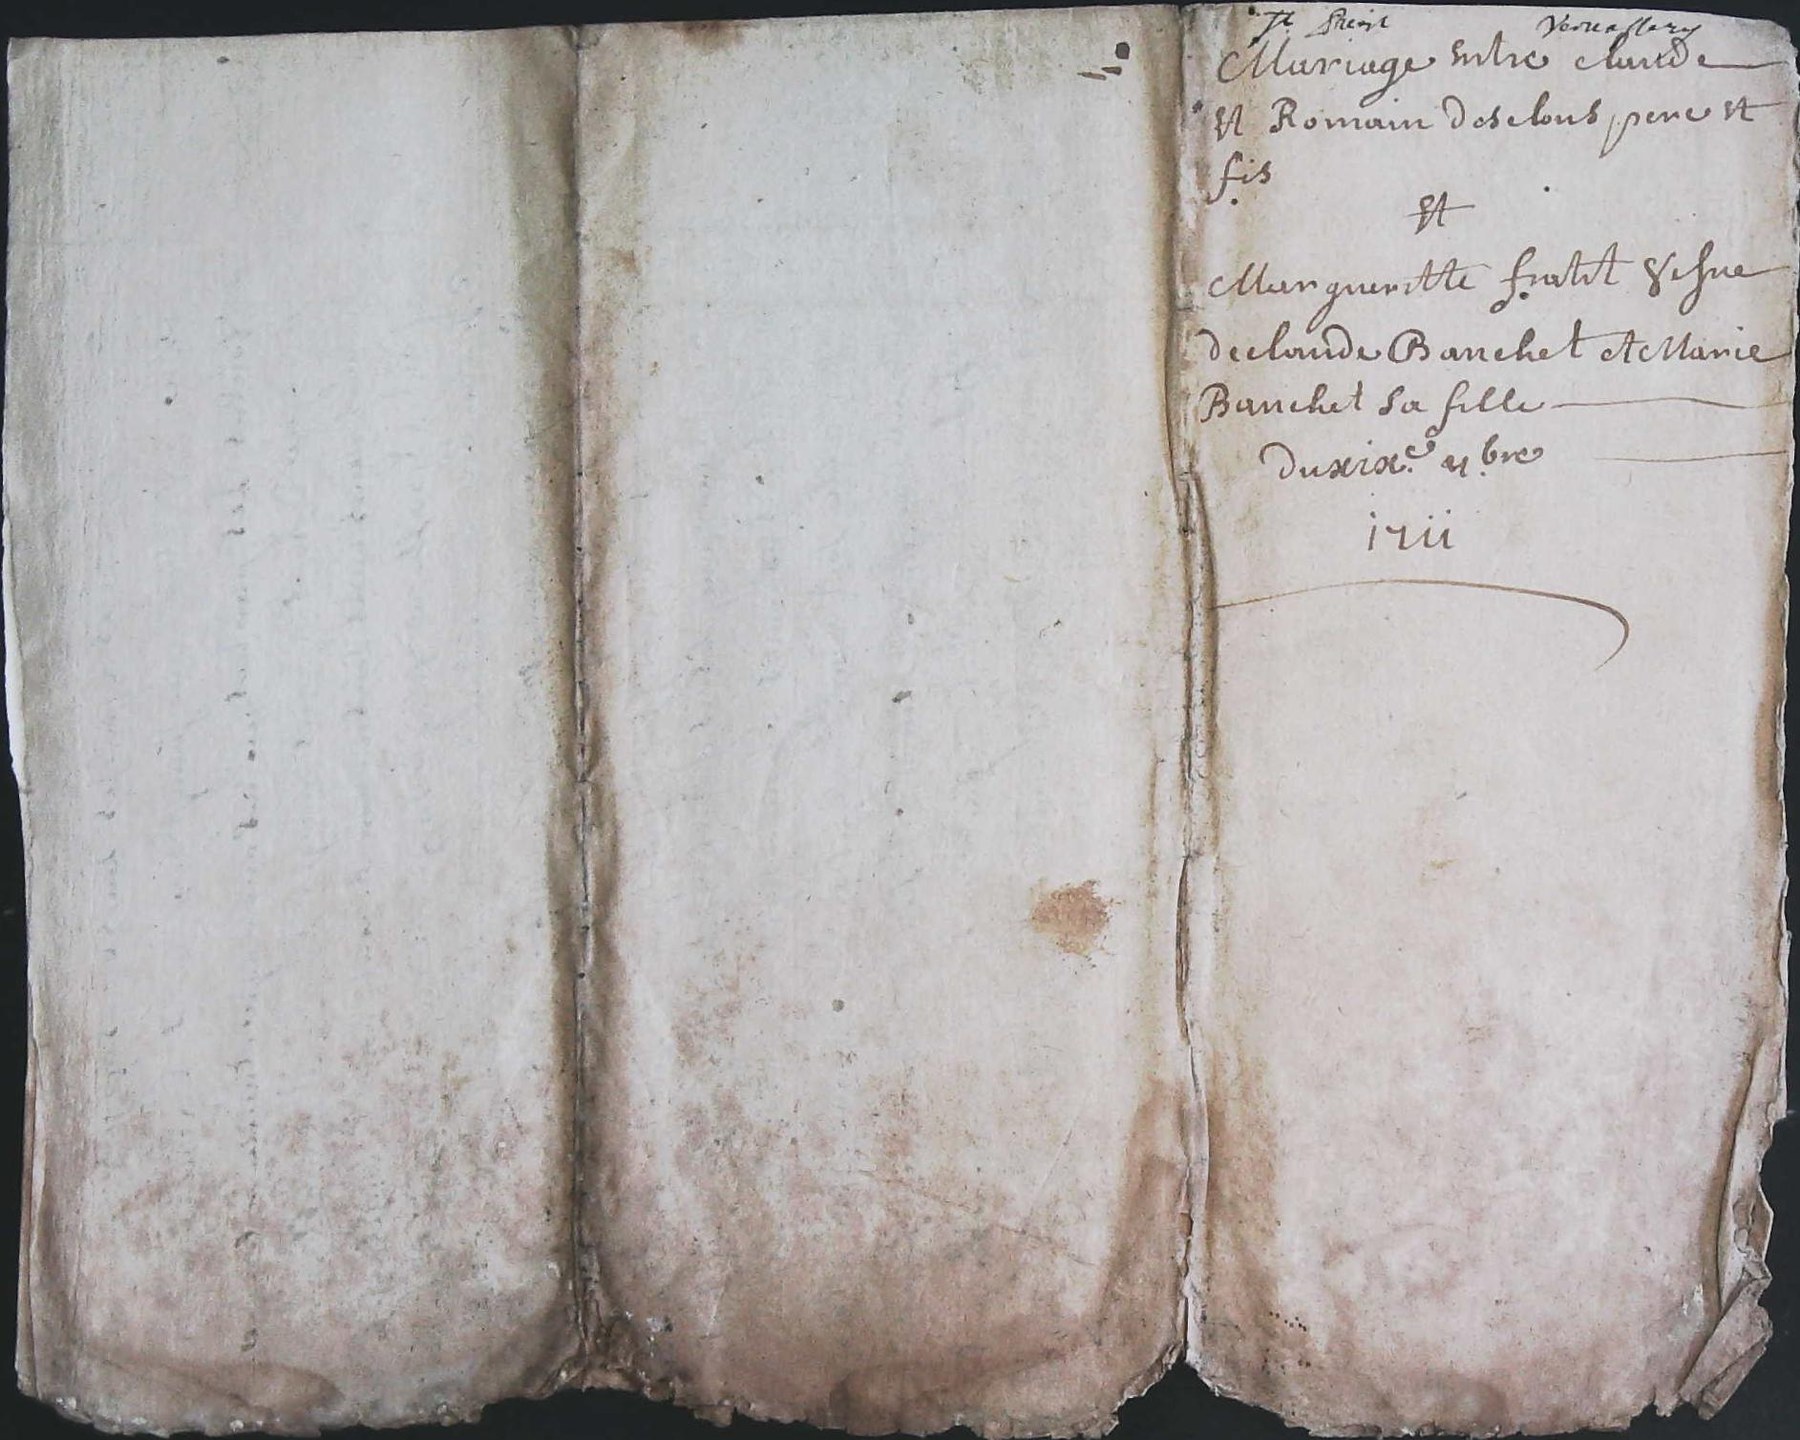 Mariage Entre claude
Et Romain desclous pere Et
fis
Et
Margueritte fratet Vefue
de claude Banchet et Marie
Banchet Sa fille
du xixe. 9.bre
1711